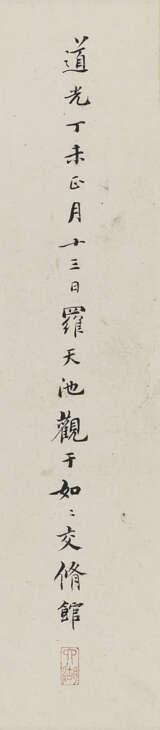 道光丁未正月十三日羅天池觀于如〻交脩館
六湖